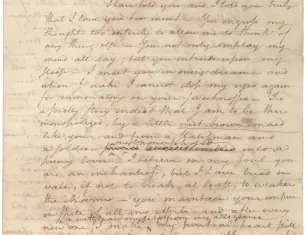 I have told you and I told you truly
that I love you too much. You engross my
thoughts too intirely to allow me to think of
any thing else. You not only employ my
mind all day; but you intrude upon my
sleep. I meet you in every dream and
when I wake I cannot close my eyes again
for ruminating on your sweetnesses. Tis
a pretty story indeed that I am to be thus
monopolized by a little maid
like you and from a statesman and
a soldier into a
puny lover. I believe in my soul you
are an inchantress; but I have tried in
vain, if not to break, at least, to weaken
the charm – you maintain your empire
in spite of all my efforts and after every
new one, I make my
partial heart still